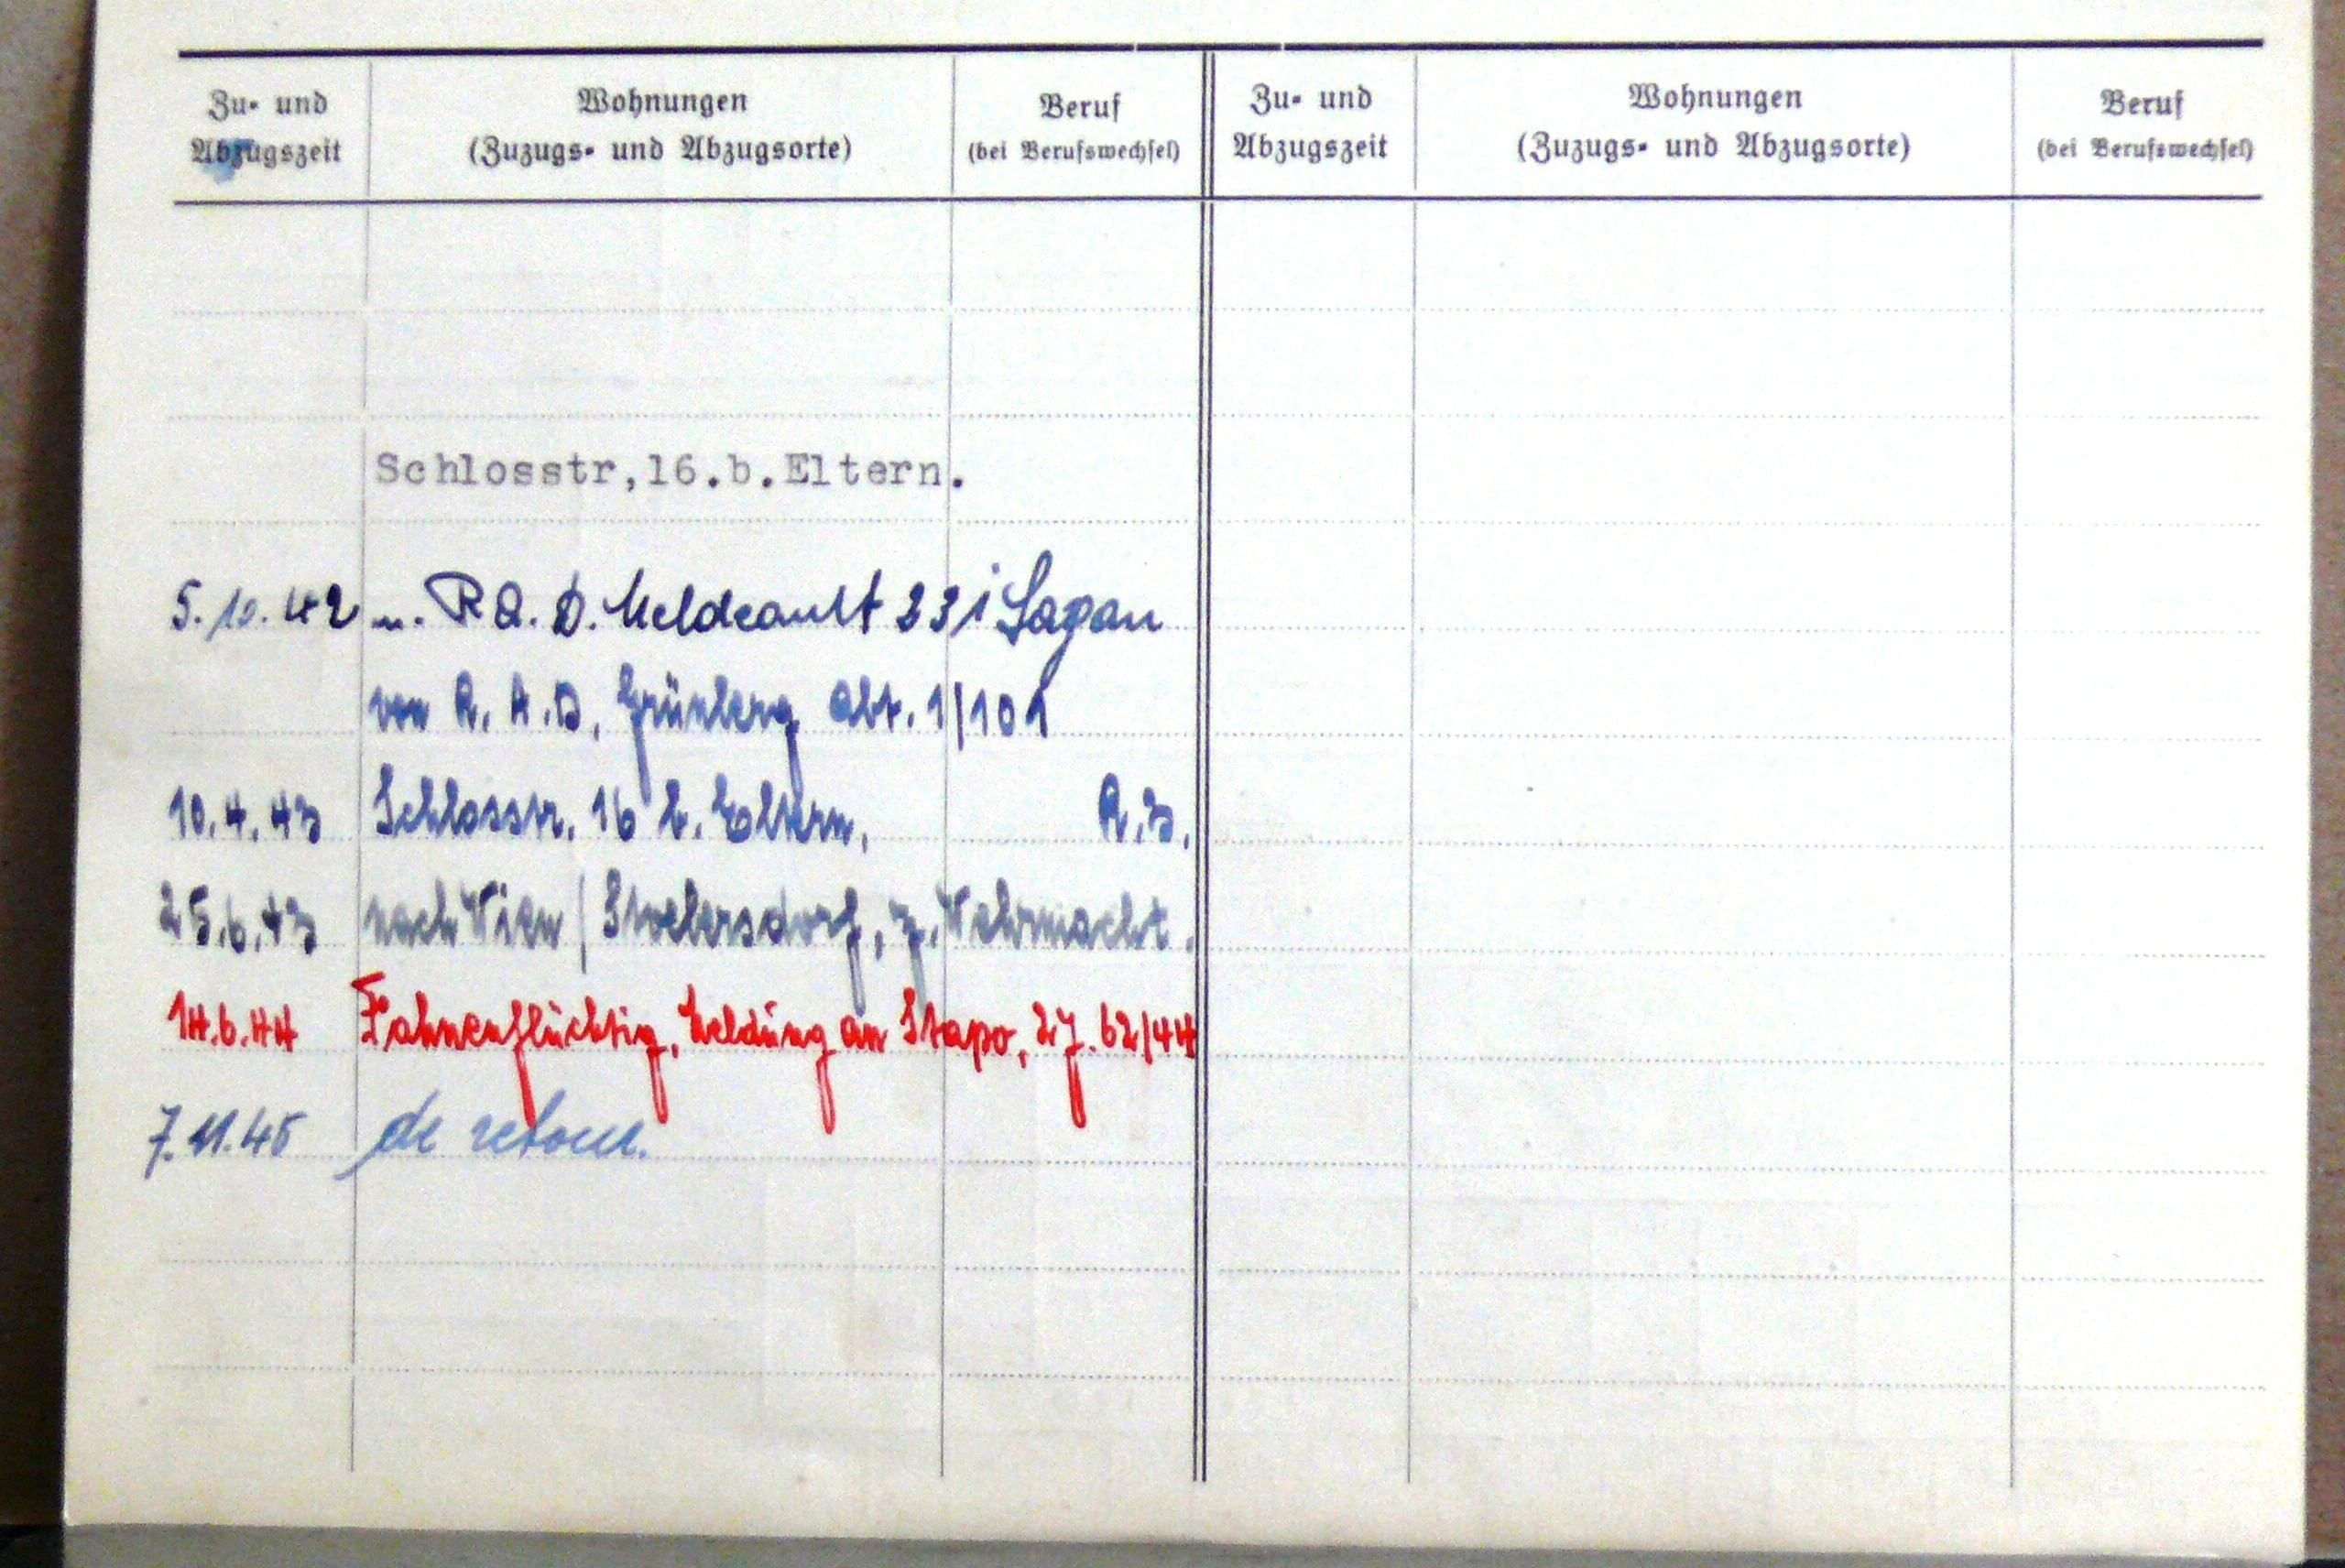 Zu- und Abzugszeit
Wohnungen (Zuzugs- und Abzugsorte)
Beruf (bei Berufswechsel)
Zu- und Abzugszeit
Wohnungen (Zuzugs- und Abzugsorte)
Beruf (bei Berufswechsel)
Schlosstr,16.b.Eltern.
5.10.42 n. R.A.D. Meldeamt 231 Sagan
von R.A.D. Grünberg Abt. 1/101
10.4.43 Schlosstr. 16 b. Eltern, R.D.
25.6.43 nach Wien/Stoekersdorf, z. Wehrmacht.
14.6.44 Fahnenflüchtig, Meldung an Stapo, 27.62/44
7.11.45 de retour.